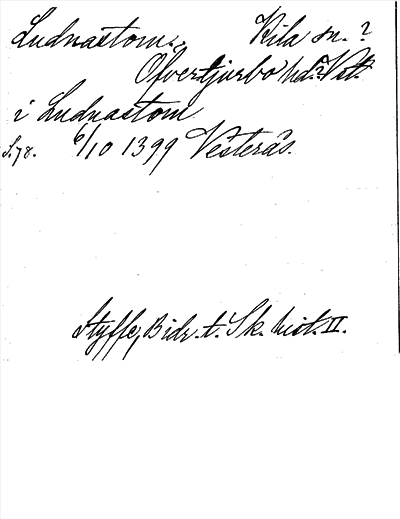 Ludnastom. Kila sn. ?
Öfvertjurbo hd.? Vstl.
i Ludnastom
S. 78. 6/10 1399 Vesterås.
Styffe, Bidr. t. Sk. hist. II.